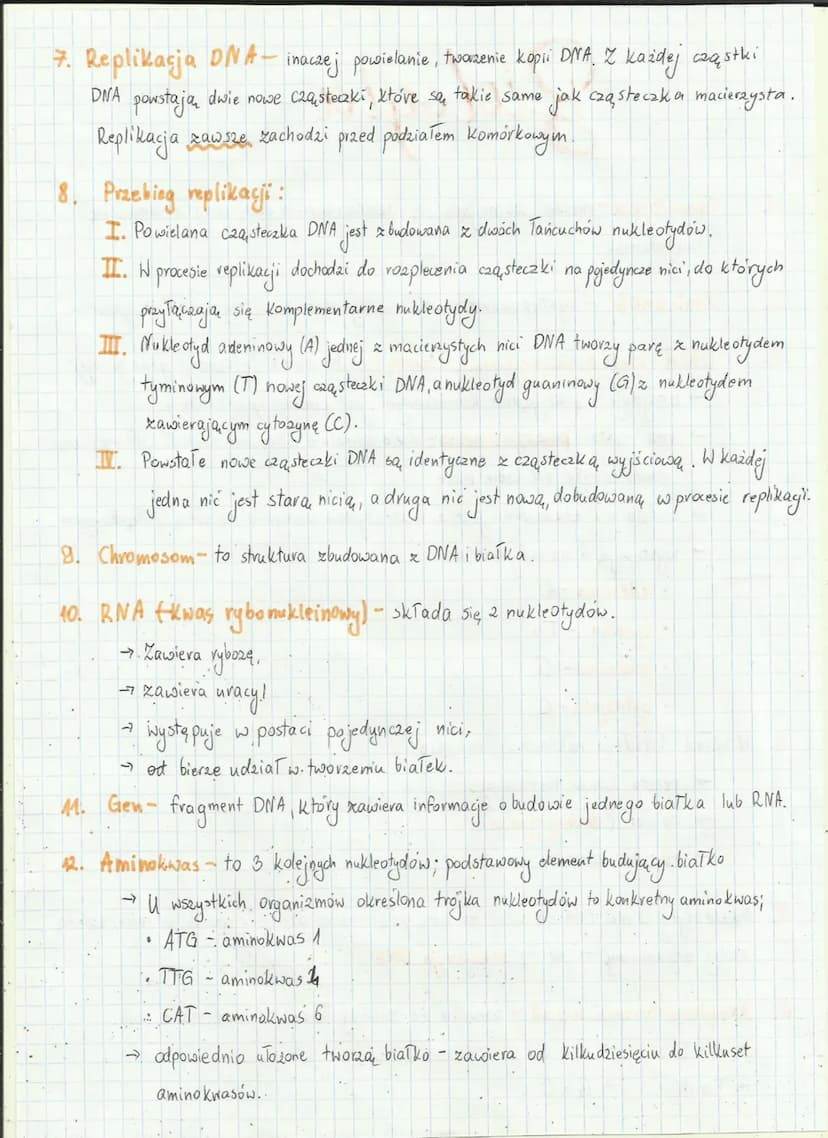 7. Replikacja DNA - inaczej powielanie, tworzenie kopii DNA. Z każdej cząstki
DNA powstają dwie nowe cząsteczki, które są takie same jak cząsteczka macierzysta.
Replikacja zawsze zachodzi przed podziałem komórkowym.
8. Przebieg replikacji:
I. Powielana cząsteczka DNA jest zbudowana z dwóch łańcuchów nukleotydów.
II. W procesie replikacji dochodzi do rozplecenia cząsteczki na pojedyncze nici, do których
przyłączają się komplementarne nukleotydy.
III. Nukleotyd adeninowy (A) jednej z macierzystych nici DNA tworzy parę z nukleotydem
tyminowym (T) nowej cząsteczki DNA, a nukleotyd guaninowy (G) z nukleotydem
zawierającym cytozynę (C).
IV. Powstałe nowe cząsteczki DNA są identyczne z cząsteczką wyjściową. W każdej
jedna nić jest starą nicią, a druga nić jest nową, dobudowaną w procesie replikacji.
9. Chromosom - to struktura zbudowana z DNA i białka.
10. RNA (kwas rybonukleinowy) - składa się z nukleotydów.
→ Zawiera rybozę,
→ zawiera uracyl
→ występuje w postaci pojedynczej nici,
→ bierze udział w tworzeniu białek.
11. Gen - fragment DNA, który zawiera informacje o budowie jednego białka lub RNA.
12. Aminokwas - to 3 kolejnych nukleotydów; podstawowy element budujący białko
→ U wszystkich organizmów określona trójka nukleotydów to konkretny aminokwas;
• ATG - aminokwas 1
• TTG - aminokwas
• CAT - aminokwas 6
→ odpowiednio ułożone tworzą białko - zawiera od kilkudziesięciu do kilkuset
aminokwasów.